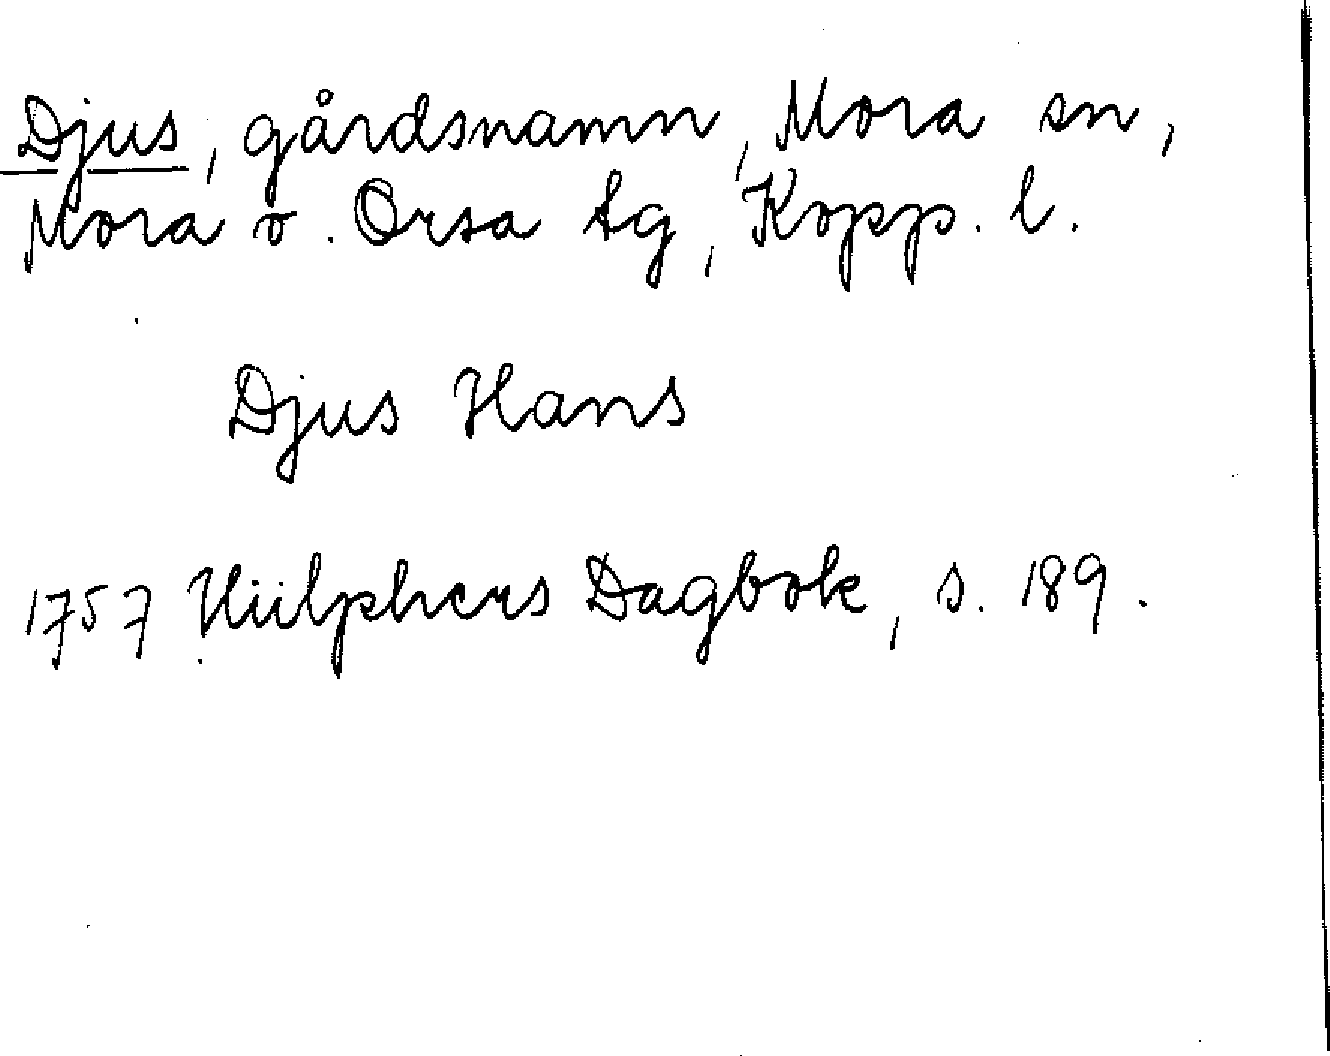 Djus, gårdsnamn, Mora sn,
Mora o. Orsa tg, Kopp. l.
Djus Hans
1757 Hülphers Dagbok, s. 189.